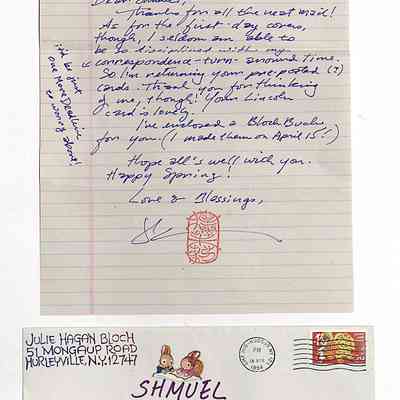 Thanks for all the neat mail!
As for the first-day covers,
though, I seldom am able to
be so disciplined with my
correspondence-turn-around time.
So I'm returning your pre-posted (?)
cards. Thank you for thinking
of me, though! Your Lincoln
card is lovely.
I've enclosed a Bloch Buck
for you (I made them on April 15!)
Hope all's well with you.
Happy Spring!
Love & Blessings,
it'd be just
one more Deadline
to worry about!
JULIE HAGAN BLOCH
51 MONGAUP ROAD
HURLEYVILLE, N.Y. 12747
PM
1994
SHMUEL